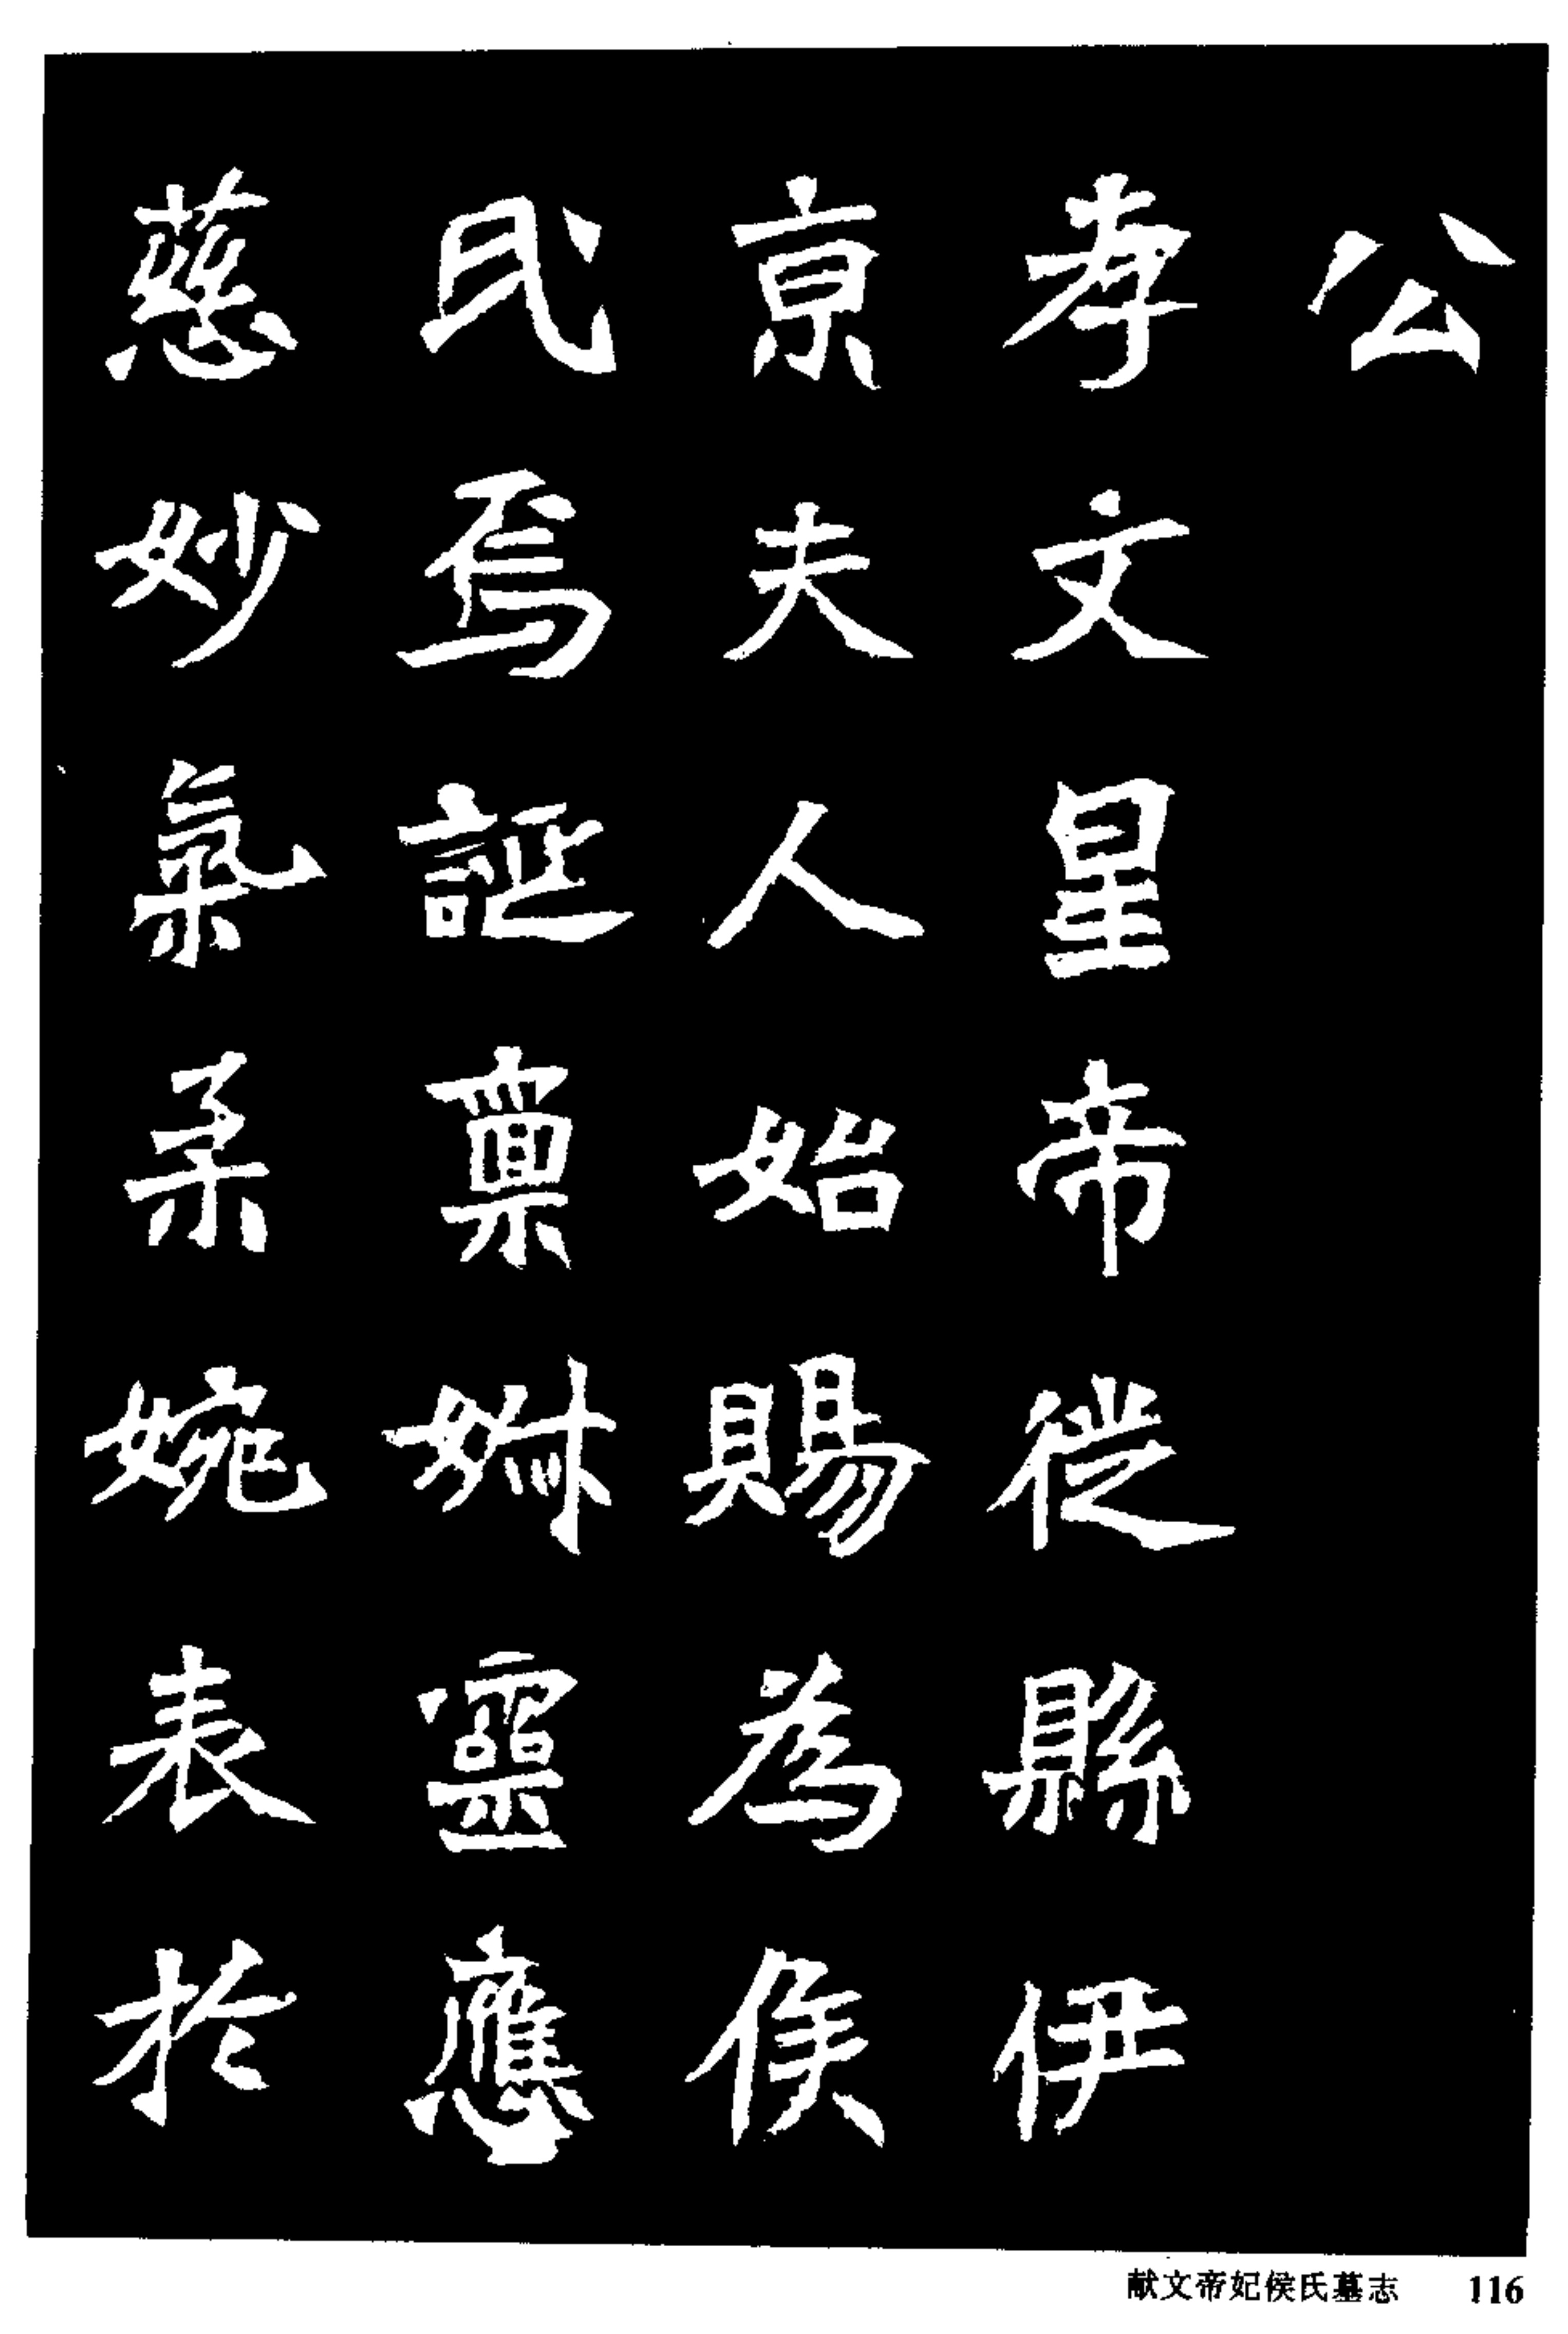 公
孝文皇帝徙縣伊
京夫人始賜為侯
氏焉誕稟婌靈應
慈妙氣柔婉表於
献文帝妃侯氏墓志 116